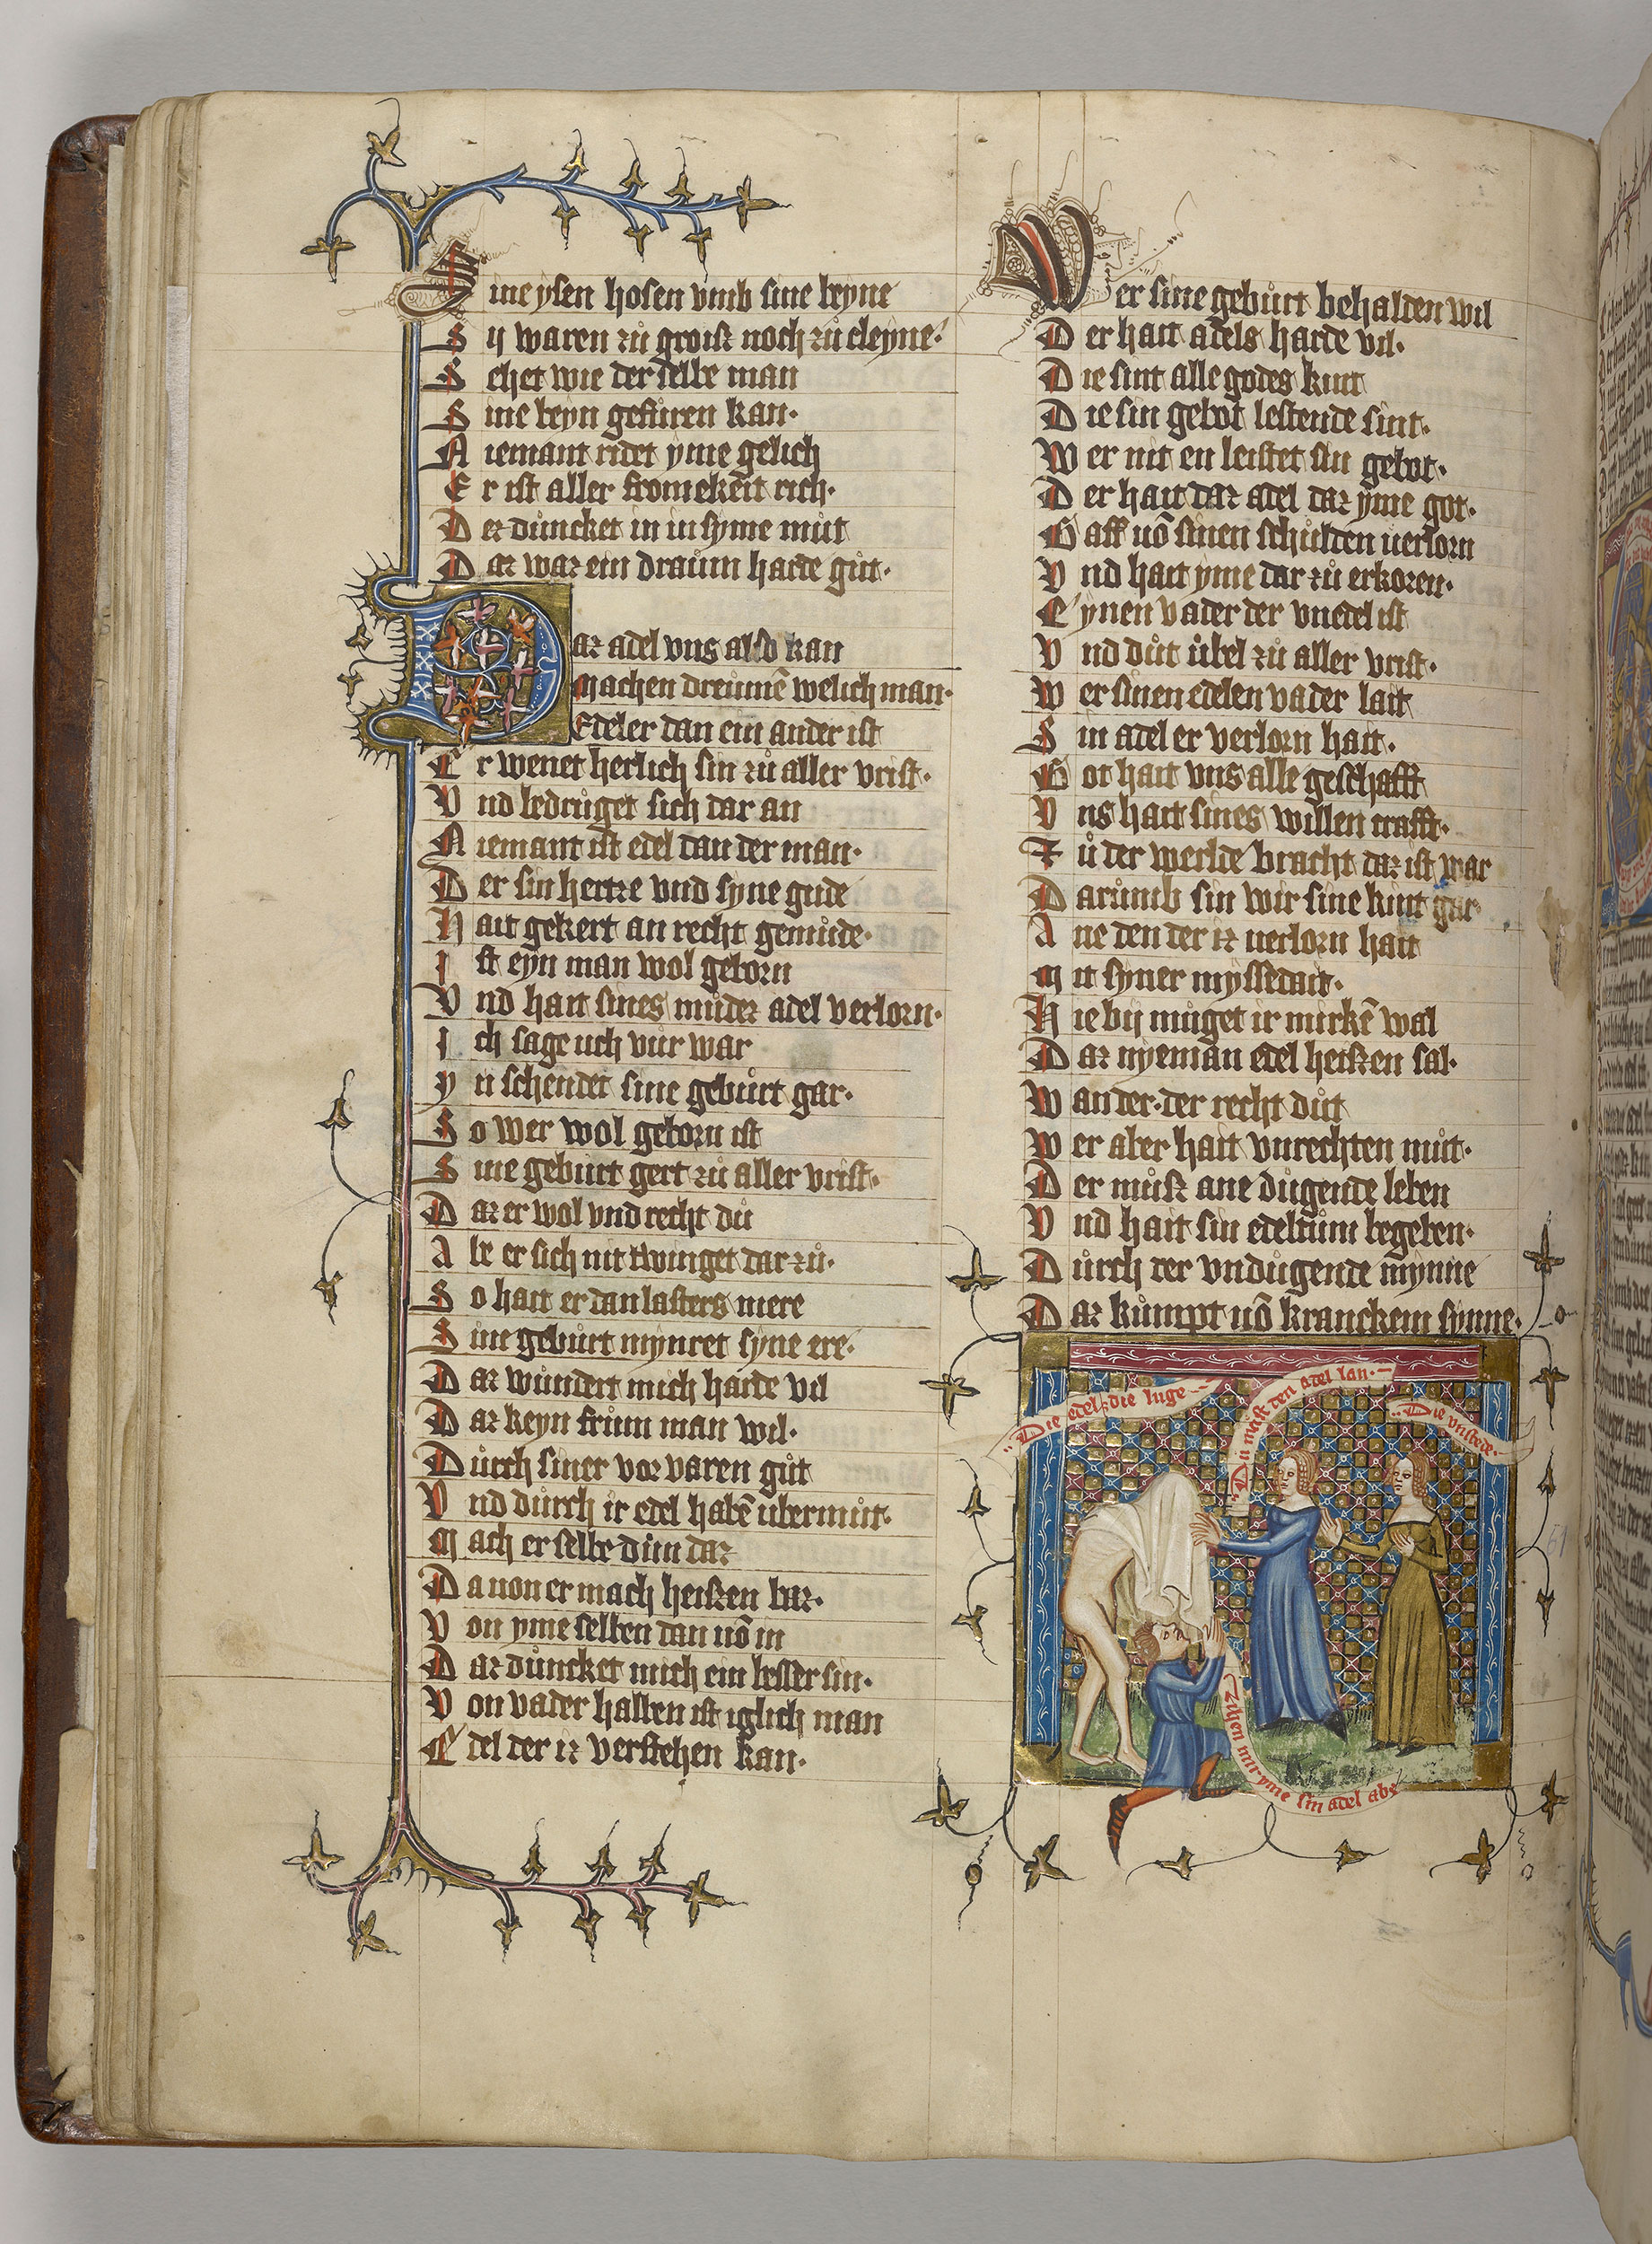 Sine ysen hosen vmb sine beyne
Sij waren zů groiß noch zů cleyne
Sehet wie der selbe man
Sine beyn gefůren kan.
Niemant ridet yme gelich
Er ist aller fromekeit rich.
Der důncket in in syme můt
Daz waz ein draům harde gůt.
Daz adel vns also kan
machen dreůmē welich man.
Edeler dan ein ander ist
Er wenet herlich sin zů aller vrist.
Vnd bedrůget sich dar an
Niemant ist edel dan der man.
Der sin hertze vnd syne gude
Hait gekert an recht gemůde.
Ist eyn man wol geborn
Vnd hait sines můdez adel verlorn.
Ich sage uch vůr war
Yn schendet sine gebůrt gar.
So wer wol geborn ist
Sine gebůrt gert zů aller vrist.
Daz er wol vnd recht dů
Abe er sich nit twinget dar zů.
So hait er dan lasters mere
Sine gebůrt mynret syne ere.
Daz wůndert mich harde vil
Daz keyn frům man wil.
Důrch siner vor varen gůt
Vnd důrch ir edel habē ůbermůt.
Mach er selbe důn daz
Da uon er mach heißen baz.
Von yme selben dan uō in
Daz důncket mich ein besser sin.
Von vader halben ist iglich man
Edel der iz verstehen kan.
Wer sine gebůrt behalden wil
Der hait adels harde vil.
Die sint alle godes kint
Die sin gebot lestende sint.
Wer nit en leistet sin gebot.
Der hait daz adel daz yme got.
Gaff uō sinen schůlden uerlorn
Vnd hait yme dar zů erkoren.
Eynen vader der vnedel ist
Vnd důt ůbel zů aller vrist.
Wer sinen edelen vader lait
Sin adel er verlorn hait.
Got hait vns alle geschafft
Vns hait sines willen crafft.
Zů der werlde bracht daz ist war
Darůmb sin wir sine kint gar
Ane den der iz uerlorn hait
Mit syner myssedait.
Hie bij můget ir mirkē wal
Daz nyeman edel heißen sal.
Wan der. der recht důt
Wer aber hait vnrechten můt.
Der můß ane důgende leben
Vnd hait sin edeltům begeben.
Důrch der vndůgende mynne
Daz kůmpt uō kranckem synne.
Die edel die luge
Du můst den adel lan.
Die vnstete.
Zihen mir yme sin adel abe